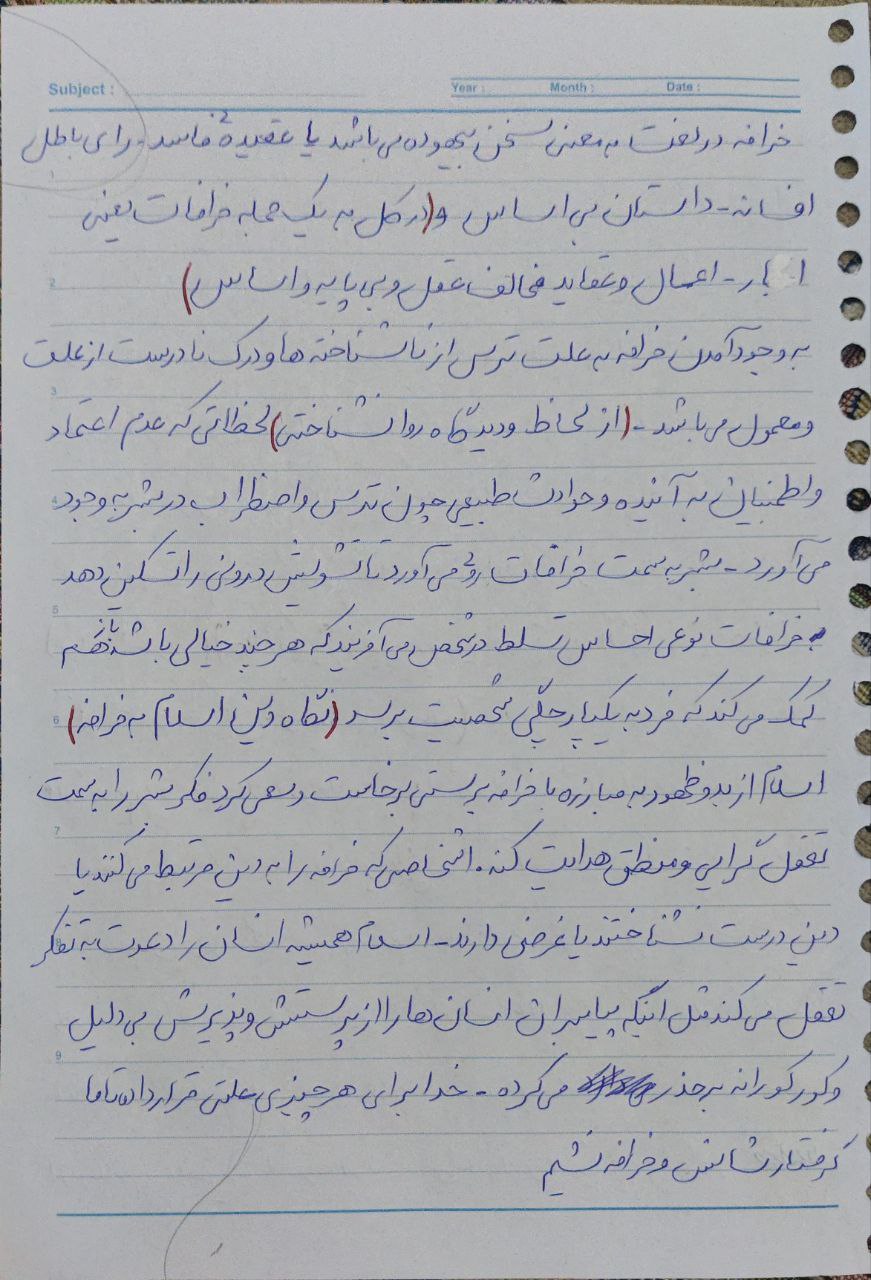 Subject :
Year : Month : Date :
خرافه در لغت به معنی سخن بیهوده می باشد یا عقیدهٔ فاسد - رای باطل
افسانه - داستان بی اساس و (در کل به یک جمله خرافات یعنی
اعمال و عقاید مخالف عقل و بی پایه و اساس)
به وجود آمدن خرافه به علت ترس از ناشناخته ها و درک نادرست از علت
و معمول می باشد - (از لحاظ و دیدگاه روانشناختی) لحظاتی که عدم اعتماد
و اطمنیان به آینده و حوادث طبیعی چون ترس و اضطراب در بشر به وجود
می آورد - بشر به سمت خرافات روی می آورد تا تشویش درونی را تسکین دهد
خرافات نوعی احساس تسلط در شخص می آفریند که هر چند خیالی باشد باز هم
کمک می کند که فرد به یکپارچگی شخصیت برسد (نگاه دین اسلام به خرافه)
اسلام از بدو ظهور به مبارزه با خرافه پرستی برخاست و سعی کرد فکر بشر را به سمت
تعقل گرایی و منطق هدایت کند. اشخاصی که خرافه را به دین مرتبط می کنند یا
دین درست نشناختند یا غرضی دارند - اسلام همیشه انسان را دعوت به تفکر
تعقل می کند مثل اینکه پیامبران انسان ها را از پرستش و پذیرش بی دلیل
و کورکورانه بر حذر می کرده - خدا برای هر چیزی علتی قرار داده تا ما
گرفتار شانس و خرافه نشیم